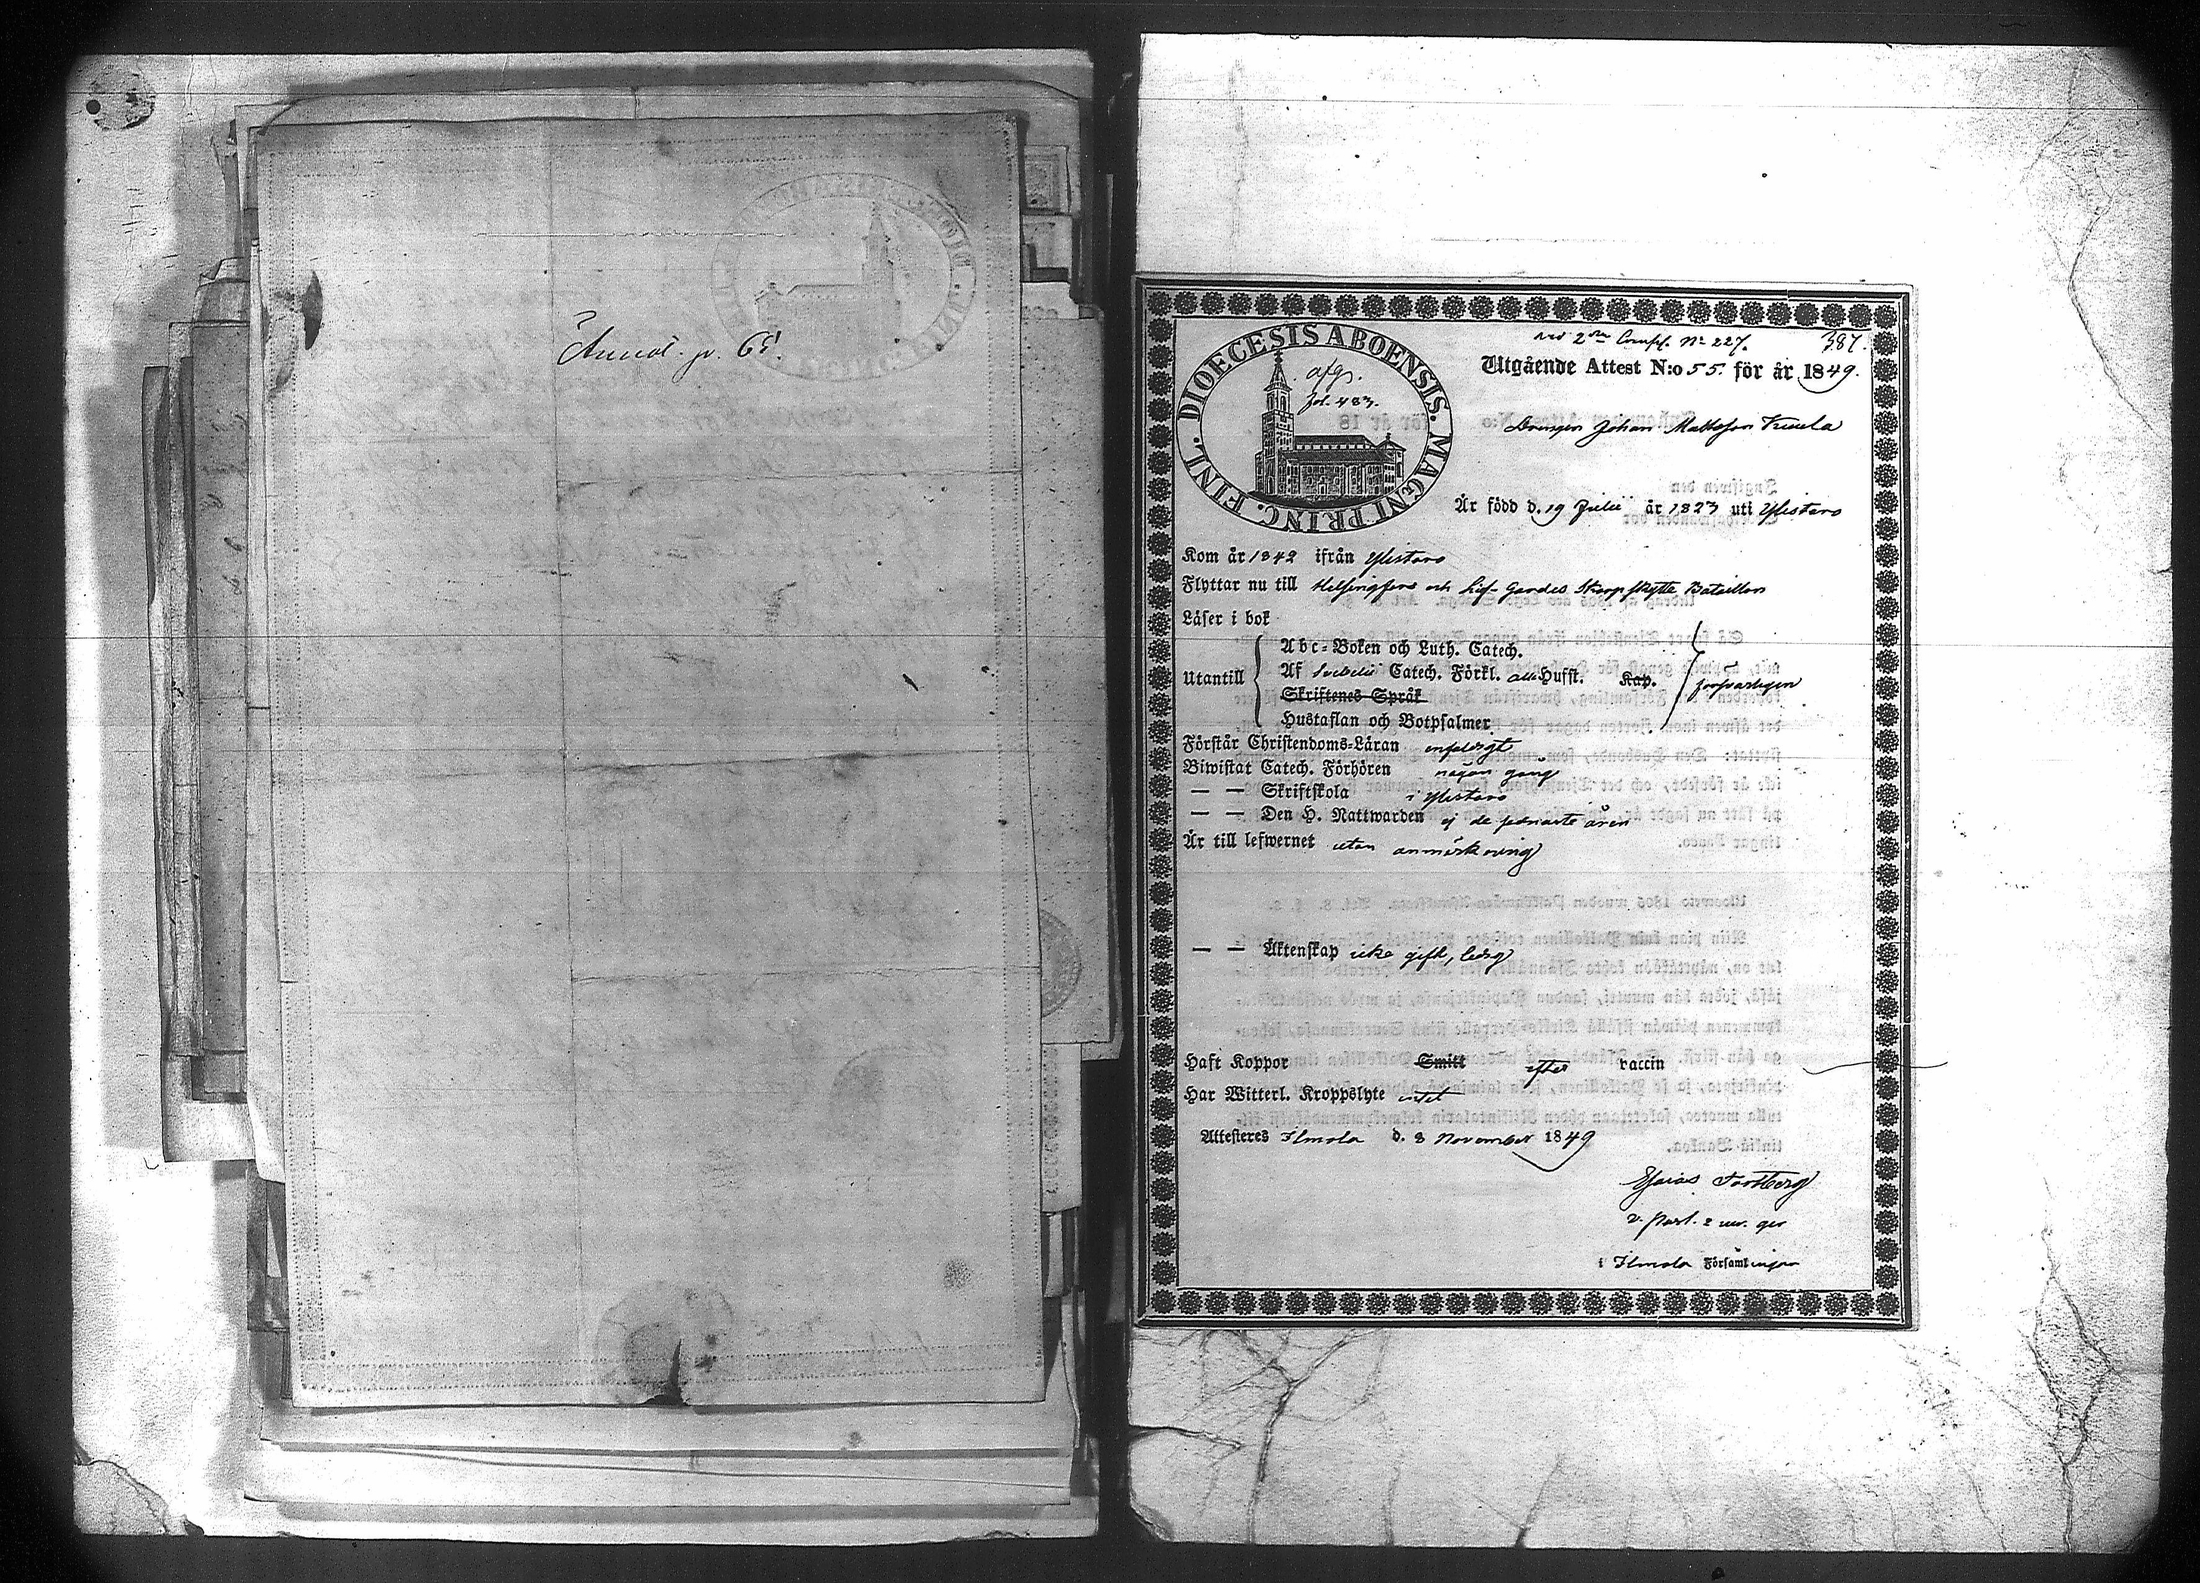 Annot. p. 65.
DIOECESIS ABOENSIS. MAGNI PRINC. FINL.
afg.
fol. 483.
vid 2dra Comp. No 227.
387.
Utgående Attest N:o 55. för år 1849.
Drengen Johan Mattsson
Är född d. 19 Julii år 1823 uti Ylistaro
Kom år 1842 ifrån Ylistaro
Flyttar nu till Helsingfors och Lif-Gardes Skarpskytte Bataillon
Läser i bok
Utantill
Abc-Boken och Luth. Catech.
Af Svebelii Catech. Förkl. alla Hufst. Kap.
Skriftenes Språk
Hustaflan och Botpsalmer
försvarligen
Förstår Christendoms-Läran enfaldigt
Biwistat Catech. Förhören någon gång
— — Skriftskola i Ylistaro
— — Den H. Nattwarden ej de sednaste åren
Är till lefwernet utan anmärkning
— — Äktenskap icke gift, ledig
Haft Koppor Smitt efter vaccin
Har Witterl. Kroppslyte intet
Attesteres Ilmola d. 8 November 1849
Esaias
v. past.
i Ilmola Församlingen